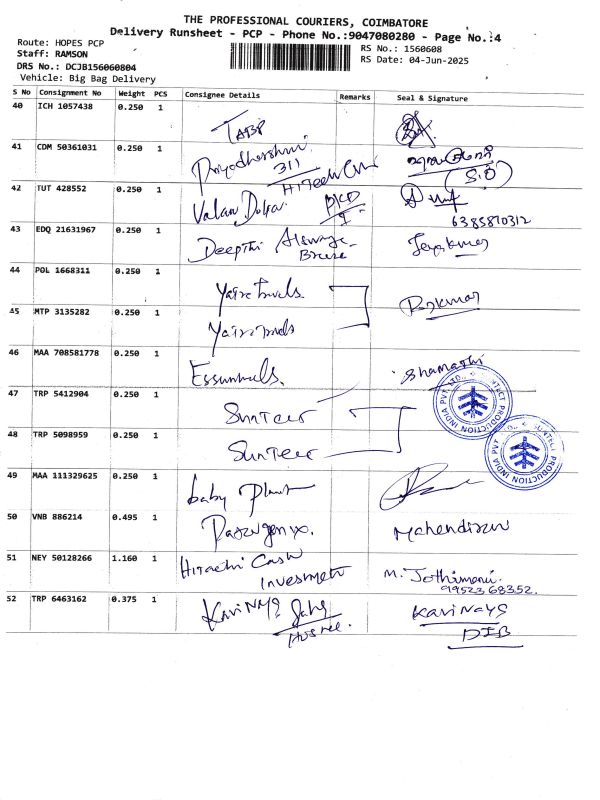 THE PROFESSIONAL COURIERS, COIMBATORE
Delivery Runsheet - PCP - Phone No.:9047080280 - Page No.:4
Route: HOPES PCP
Staff: RAMSON
DRS No.: DCJB156060804
Vehicle: Big Bag Delivery
RS No.: 1560608
RS Date: 04-Jun-2025
S No Consignment No Weight PCS Consignee Details Remarks Seal & Signature
40 ICH 1057438 0.250 1
41 CDM 50361031 0.250 1 Priyadharshni
311
42 TUT 428552 0.250 1 Valan
6385870312
43 EDQ 21631967 0.250 1 Deepthi
Jeyakumar
44 POL 1668311 0.250 1 Yatra Travels
Rajkumar
45 MTP 3135282 0.250 1 Yatra Travels
46 MAA 708581778 0.250 1 Essentials.
47 TRP 5412904 0.250 1 Suntec
PRODUCTION INDIA PVT
48 TRP 5098959 0.250 1 Suntec
PRODUCTION INDIA PVT
49 MAA 111329625 0.250 1 baby Plant
50 VNB 886214 0.495 1 Mahendiran
51 NEY 50128266 1.160 1 Hitachi Cash
Investment
M. Jothimani
9952368352.
52 TRP 6463162 0.375 1 Kavi Naya
KaviNaya